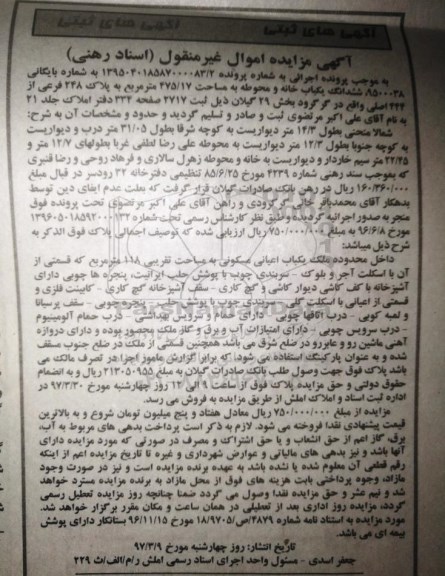 آگهی های ثبتی
آگهی های ثبتی
آگهی مزایده اموال غیرمنقول (اسناد رهنی)
به موجب پرونده اجرائی به شماره پرونده ۱۳۹۵۰۴۰۱۸۵۸۷۰۰۰۰۸۳/۲ به شماره بایگانی
۹۵۰۰۰۳۸ ششدانگ یکباب خانه و محوطه به مساحت ۲۷۵/۱۷ مترمربع به پلاک ۲۴۸ فرعی از
۴۴۴ اصلی واقع در گرگرود بخش ۲۹ گیلان ذیل ثبت ۲۷۱۷ صفحه ۳۳۳ دفتر املاک جلد ۲۱
به نام آقای علی اکبر مرتضوی ثبت و صادر و تسلیم گردید و حدود و مشخصات آن به شرح:
شمالا منحنی بطول ۱۴/۳ متر دیواریست به کوچه شرقا بطول ۳۱/۰۵ متر درب و دیواریست
به کوچه جنوبا بطول ۱۲/۳ متر دیواریست به محوطه علی رضا لطفی غربا بطولهای ۱۲/۷ متر و
۲۲/۴۵ متر سیم خاردار و دیواریست به خانه و محوطه زهرا سالاری و فرهاد روحی و رضا قنبری
که بموجب سند رهنی شماره ۴۲۳۹ مورخ ۸۵/۶/۲۵ تنظیمی دفترخانه ۳۲ رودسر در قبال مبلغ
۱۶۰/۳۶۰/۰۰۰ ریال در رهن بانک صادرات گیلان قرار گرفت که بعلت عدم ایفای دین توسط
بدهکار آقای محمدباقر خانی گرگرودی و راهن آقای علی اکبر مرتضوی تحت پرونده فوق
منجر به صدور اجرائیه گردیده و طبق نظر کارشناس رسمی تحت شماره ۱۳۹۶۰۵۰۱۸۵۹۲۰۰۰۱۳۳
مورخ ۹۶/۶/۸ به مبلغ ۷۵۰/۰۰۰/۰۰۰ ریال ارزیابی شده که توصیف اجمالی پلاک فوق الذکر به
شرح ذیل میباشد:
داخل محدوده ملک یکباب اعیانی مسکونی به مساحت تقریبی ۱۱۸ مترمربع که قسمتی از
آن با اسکلت آجر و بلوک - سربندی چوب با پوشش حلب ایرانیت، پنجره ها چوبی دارای
آشپزخانه با کف کاشی دیوار کاشی و گچ کاری - سقف آشپزخانه گچ کاری - کابینت فلزی و
قسمتی از اعیانی با اسکلت گلی - سربندی چوب با پوشش حلب - پنجره چوبی - سقف پرسیانا
و لمبه کوبی - درب اتاقها چوبی - دارای حمام و سرویس بهداشتی - درب حمام آلومینیوم
- درب سرویس چوبی - دارای امتیازات آب و برق و گاز ملک محصور بوده و دارای دروازه
آهنی ماشین رو و عابررو در ضلع شرق می باشد همچنین قسمتی از ملک در ضلع جنوب مسقف
شده و به عنوان پارکینگ استفاده می شود، که برابر گزارش مامور اجرا در تصرف مالک می
باشد. پلاک فوق جهت وصول طلب بانک صادرات گیلان به مبلغ ۲۱۳۰۵۰۹۵۵ ریال و به انضمام
حقوق دولتی و حق مزایده پلاک فوق از ساعت ۹ الی ۱۲ روز چهارشنبه مورخ ۹۷/۳/۳۰ در
اداره ثبت اسناد و املاک املش از طریق مزایده به فروش می رسد.
مزایده از مبلغ ۷۵۰/۰۰۰/۰۰۰ ریال معادل هفتاد و پنج میلیون تومان شروع و به بالاترین
قیمت پیشنهادی نقدا فروخته می شود. لازم به ذکر است پرداخت بدهی های مربوط به آب،
برق، گاز اعم از حق انشعاب و یا حق اشتراک و مصرف در صورتی که مورد مزایده دارای
آنها باشد و نیز بدهی های مالیاتی و عوارض شهرداری و غیره تا تاریخ مزایده اعم از اینکه
رقم قطعی آن معلوم شده یا نشده باشد به عهده برنده مزایده است و نیز در صورت وجود
مازاد، وجوه پرداختی بابت هزینه های فوق از محل مازاد به برنده مزایده مسترد خواهد
شد و نیم عشر و حق مزایده نقدا وصول می گردد ضمنا چنانچه روز مزایده تعطیل رسمی
گردد، مزایده روز اداری بعد از تعطیلی در همان ساعت و مکان مقرر برگزار خواهد شد.
مورد مزایده به استناد نامه شماره ۲۸۷۹/ص/۱۸/۹۷۰۵ مورخ ۹۶/۱۱/۱۵ بستانکار دارای پوشش
بیمه ای می باشد.
تاریخ انتشار: روز چهارشنبه مورخ ۹۷/۳/۹
جعفر اسدی - مسئول واحد اجرای اسناد رسمی املش ر/م/الف/ث ۲۲۹